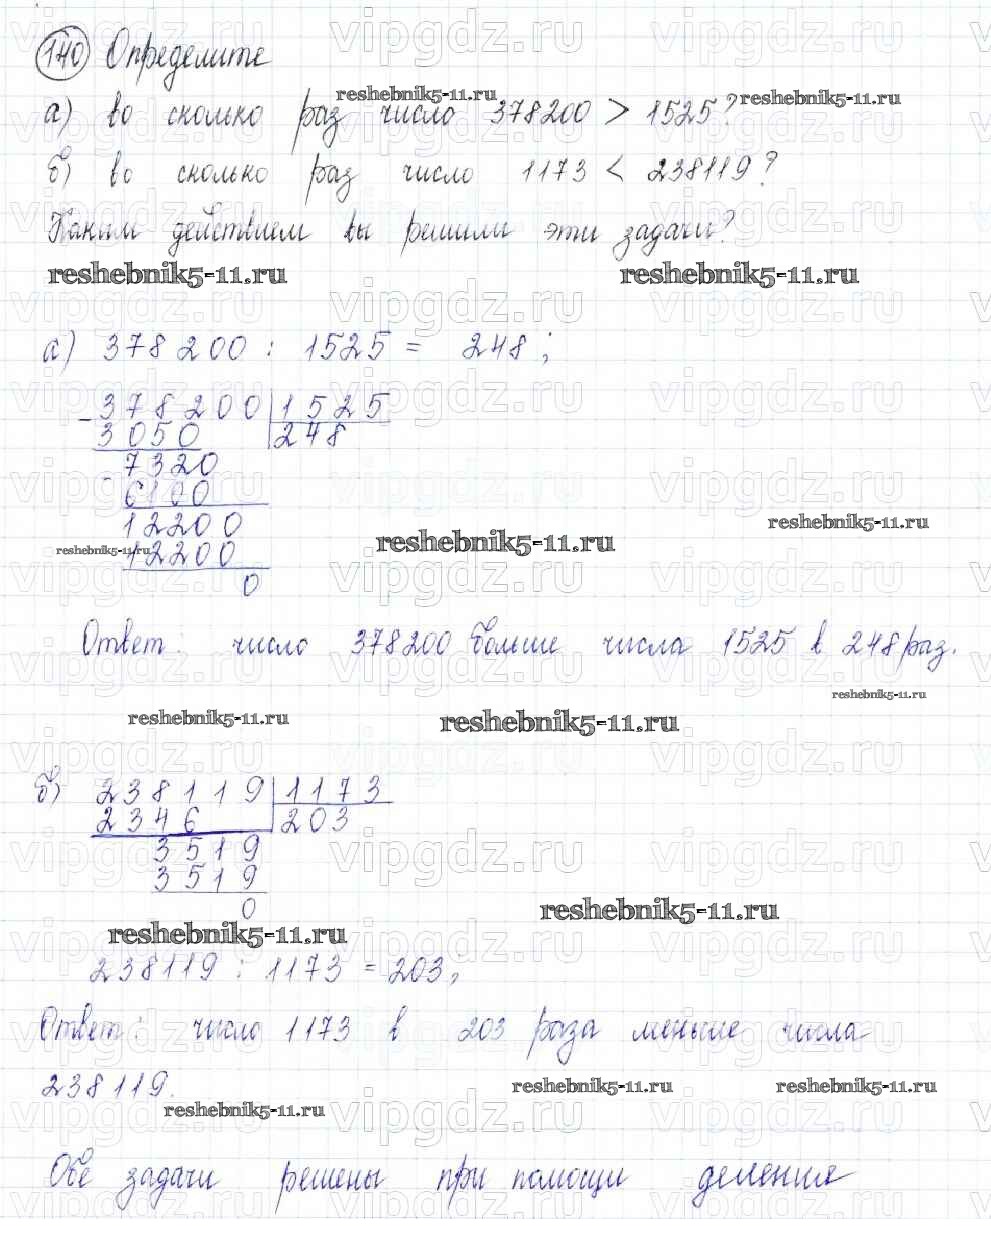 140 Определите
reshebnik5-11.ru reshebnik5-11.ru
а) во сколько раз число 378200 > 1525?
б) во сколько раз число 1173 < 238119?
Каким действием вы решили эти задачи?
reshebnik5-11.ru reshebnik5-11.ru
а) 378200 : 1525 = 248;
- 378200 | 1525
3050 248
- 7320
6100
12200
12200
0
reshebnik5-11.ru
reshebnik5-11.ru
reshebnik5-11.ru
Ответ: число 378200 больше числа 1525 в 248 раз.
reshebnik5-11.ru
reshebnik5-11.ru reshebnik5-11.ru
б) 238119 | 1173
2346 203
3519
3519
0
reshebnik5-11.ru
reshebnik5-11.ru
238119 : 1173 = 203;
Ответ: число 1173 в 203 раза меньше числа
238119.
reshebnik5-11.ru reshebnik5-11.ru
reshebnik5-11.ru
Обе задачи решены при помощи деления
vipgdz.ru